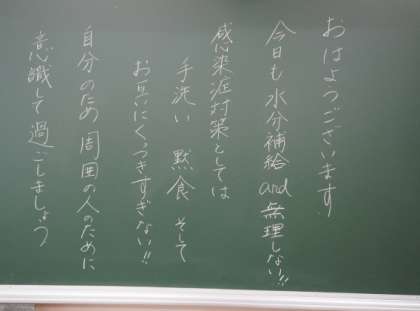 おはようございます。
今日も水分補給and無理しない!!
感染症対策としては
手洗い 黙食 そして
お互いにくっつきすぎない!!
自分のため 周囲の人のために
意識して過ごしましょう